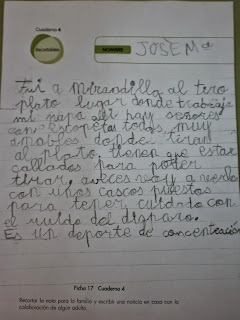 Cuaderno 4
Recortables
NOMBRE
JOSÈ Mª
Fui a Mirandilla al tiro
plato lugar donde trabaja
mi papa alli hay señores
con escopetas todos muy
amables donde tiran
al plato tienen que estar
callados para poder
tirar, aveces voy a verlo
con unos cascos puestos
para tener cuidado con
el ruido del disparo.
Es un deporte de concentración
Ficha 17 Cuaderno 4
Recortar la nota para la familia y escribir una noticia en casa con la
colaboración de algún adulto.